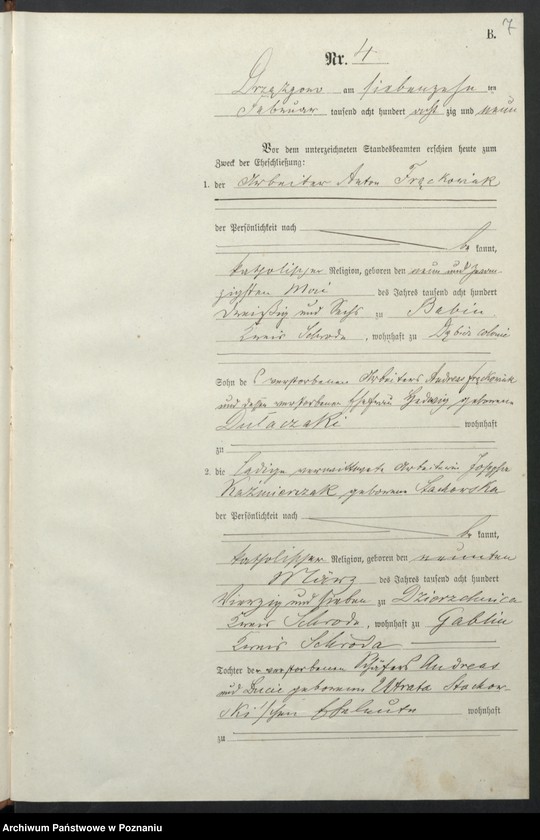 B. 7
Nr. 4
am siebenzehn ten
Februar tausend acht hundert acht zig und neun
Vor dem unterzeichneten Standesbeamten erschien heute zum
Zweck der Eheschließung:
1. der Arbeiter Anton Frąckowiak
der Persönlichkeit nach
be kannt,
katholischer Religion, geboren den neun und zwan-
zigsten Mai des Jahres tausend acht hundert
dreißig und sechs zu Babin
Kreis Schroda, wohnhaft zu Dębicz colonie
Sohn de s verstorbenen Arbeiters Andreas Frąckowiak
und dessen verstorbenen Ehefrau Hedwig geborene
wohnhaft
zu
2. die verwittwete Arbeiterin Josepha
Kaźmierczak geborene
der Persönlichkeit nach
be kannt,
katholischer Religion, geboren den neunten
März des Jahres tausend acht hundert
vierzig und sieben zu Dzierzchnica
Kreis Schroda, wohnhaft zu Gablin
Kreis Schroda
Tochter der verstorbenen Schäfers Andreas
und Lucie geborenen Utrata
ski'schen Eheleute wohnhaft
zu
Archiwum Państwowe w Poznaniu